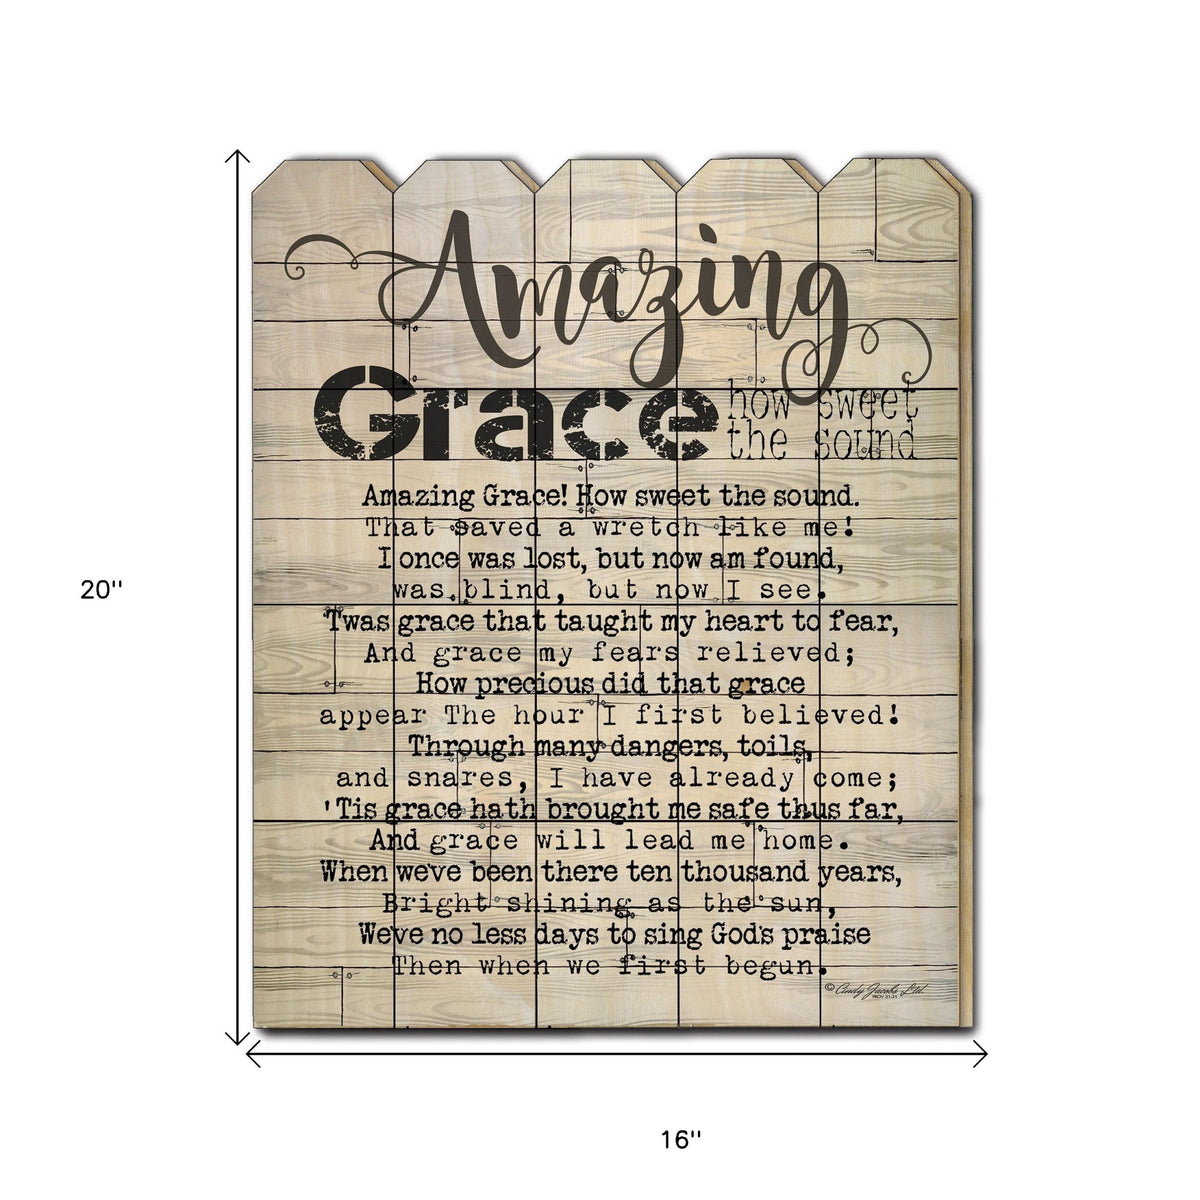 Amazing
Grace how sweet
the sound
Amazing Grace! How sweet the sound.
That saved a wretch like me!
I once was lost, but now am found,
was blind, but now I see.
'Twas grace that taught my heart to fear,
And grace my fears relieved;
How precious did that grace
appear The hour I first believed!
Through many dangers, toils,
and snares, I have already come;
'Tis grace hath brought me safe thus far,
And grace will lead me home.
When we've been there ten thousand years,
Bright shining as the sun,
We've no less days to sing God's praise
Then when we first begun.
© Cindy Jacobs Ltd.
20"
16"